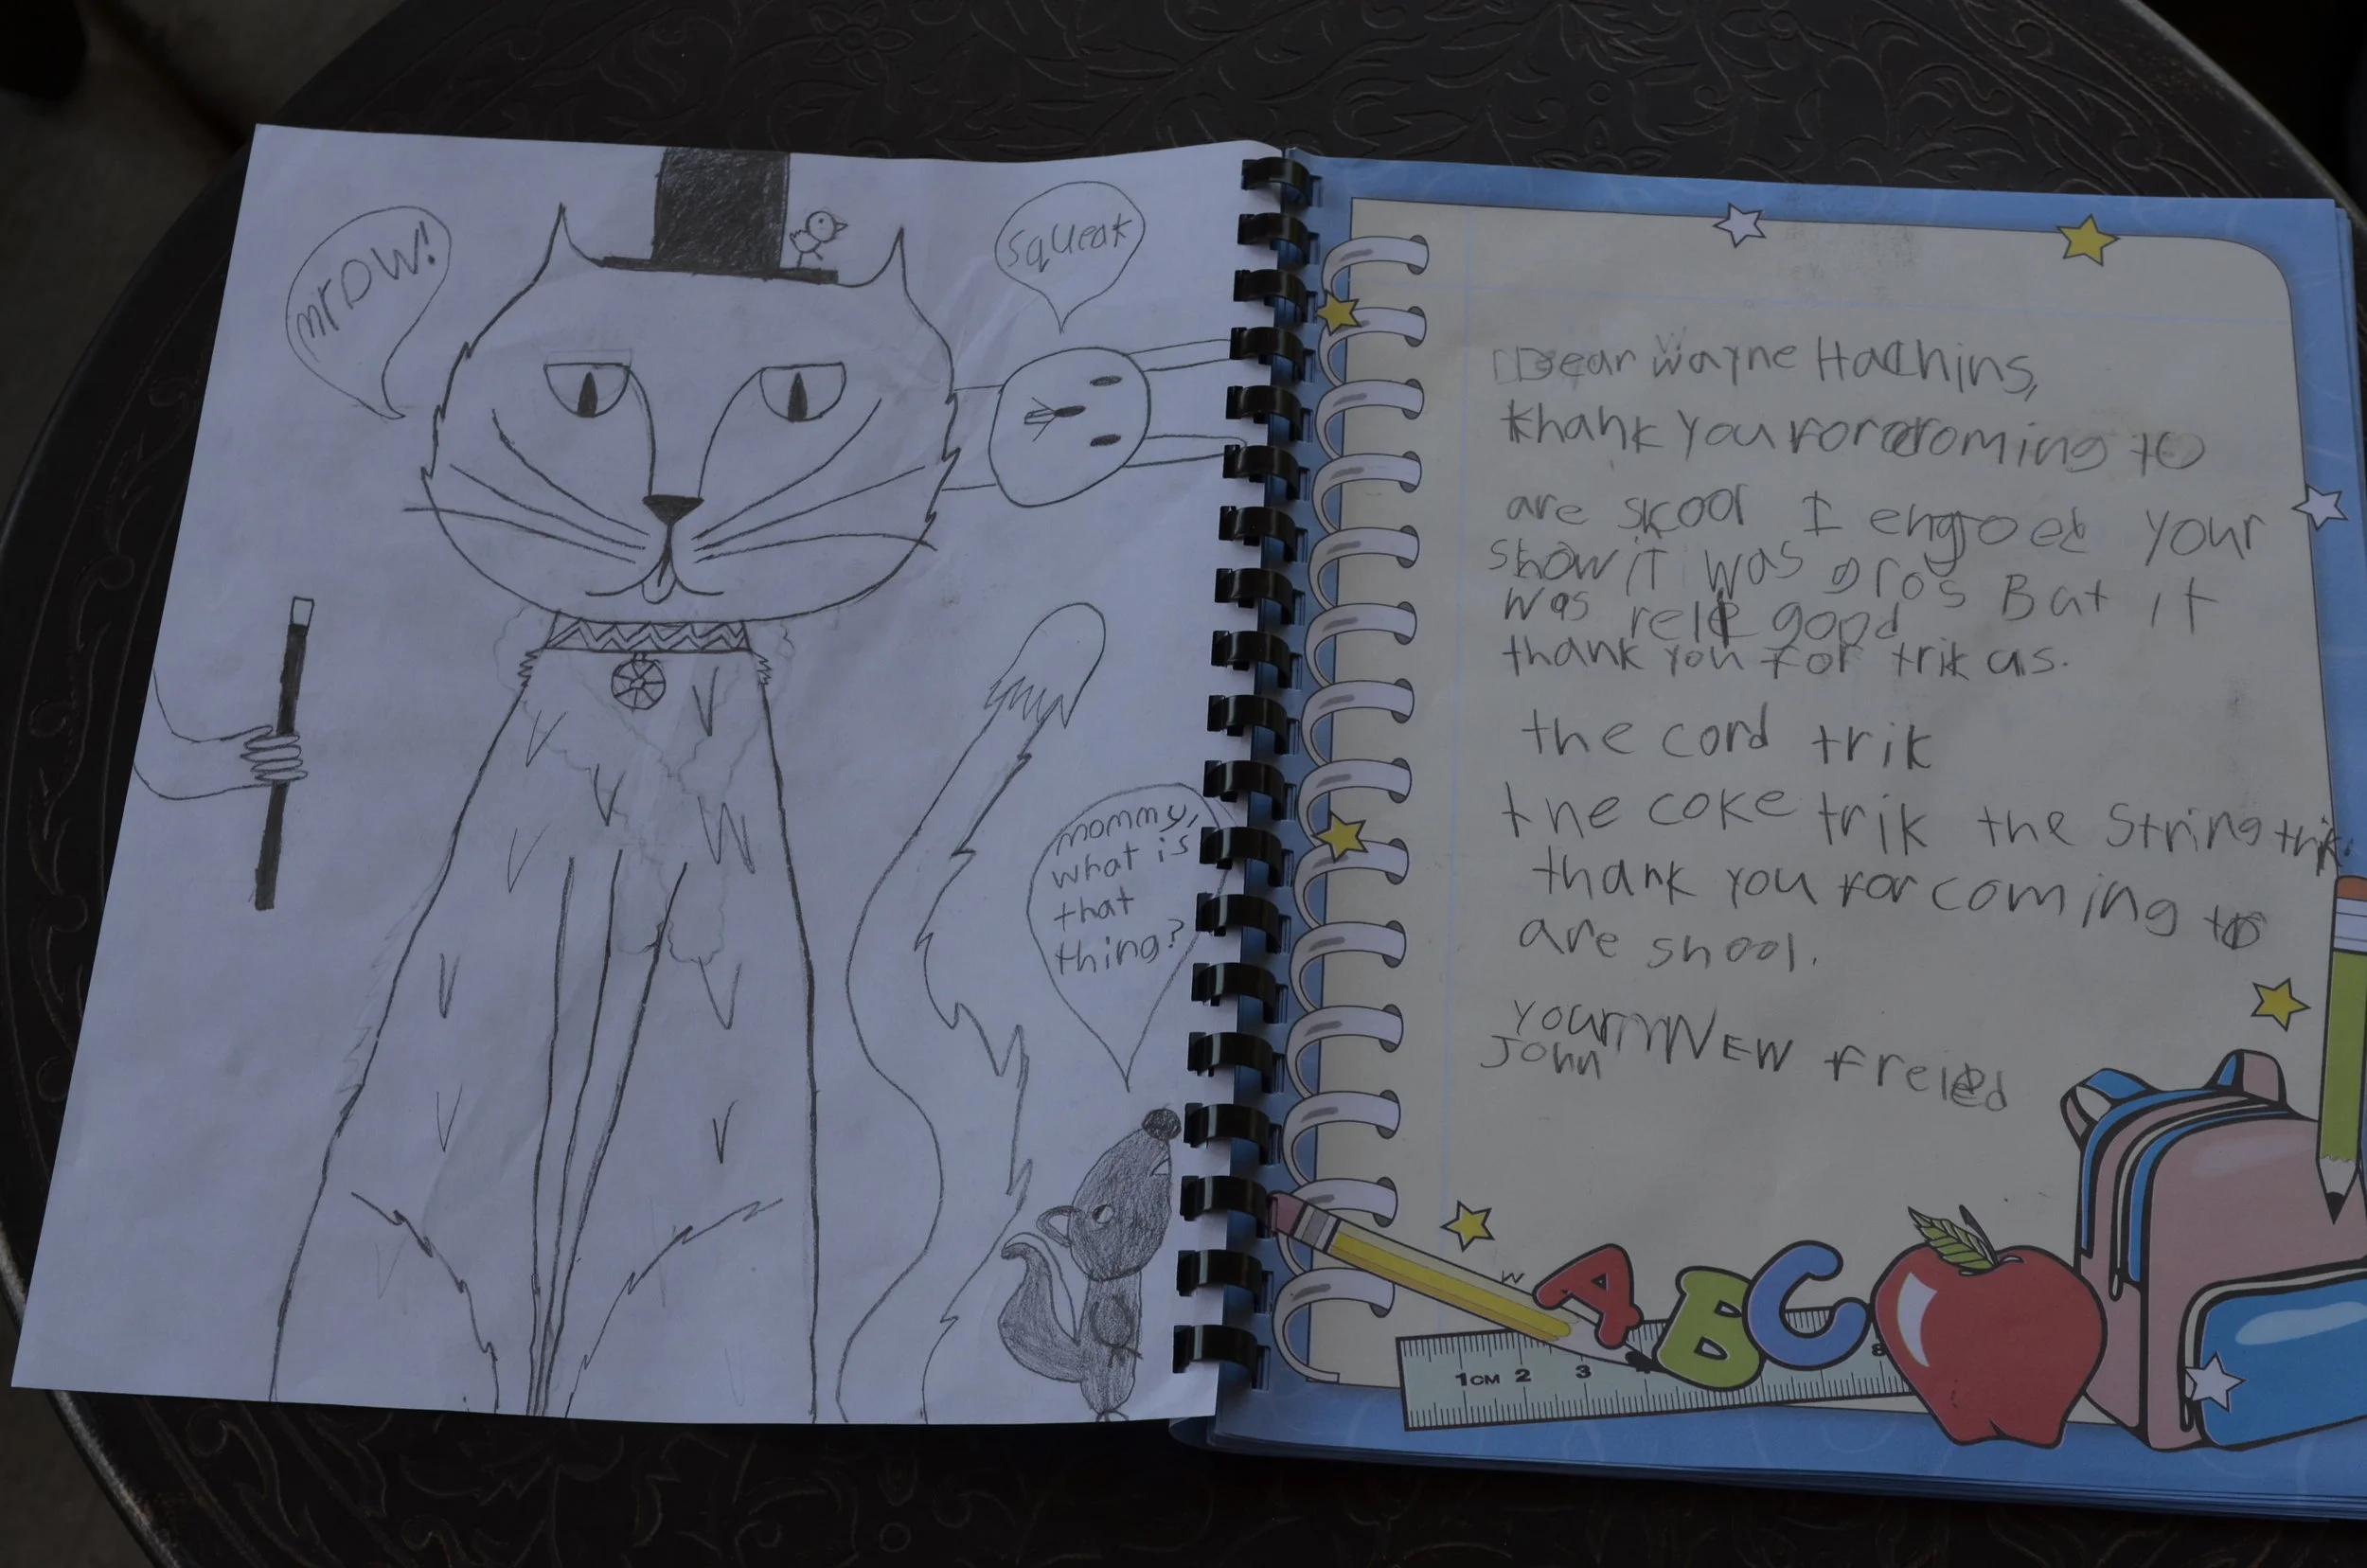 mrow!
squeak
mommy,
what is
that
thing?
Dear Wayne Hachins,
thank you for coming to
are skool I engoed your
show it was gros Bat it
was rele good
thank you for trik as.
the cord trik
the coke trik the string trik.
thank you for coming to
are shool.
your NEW freied
John
A B C
1CM 2 3
8